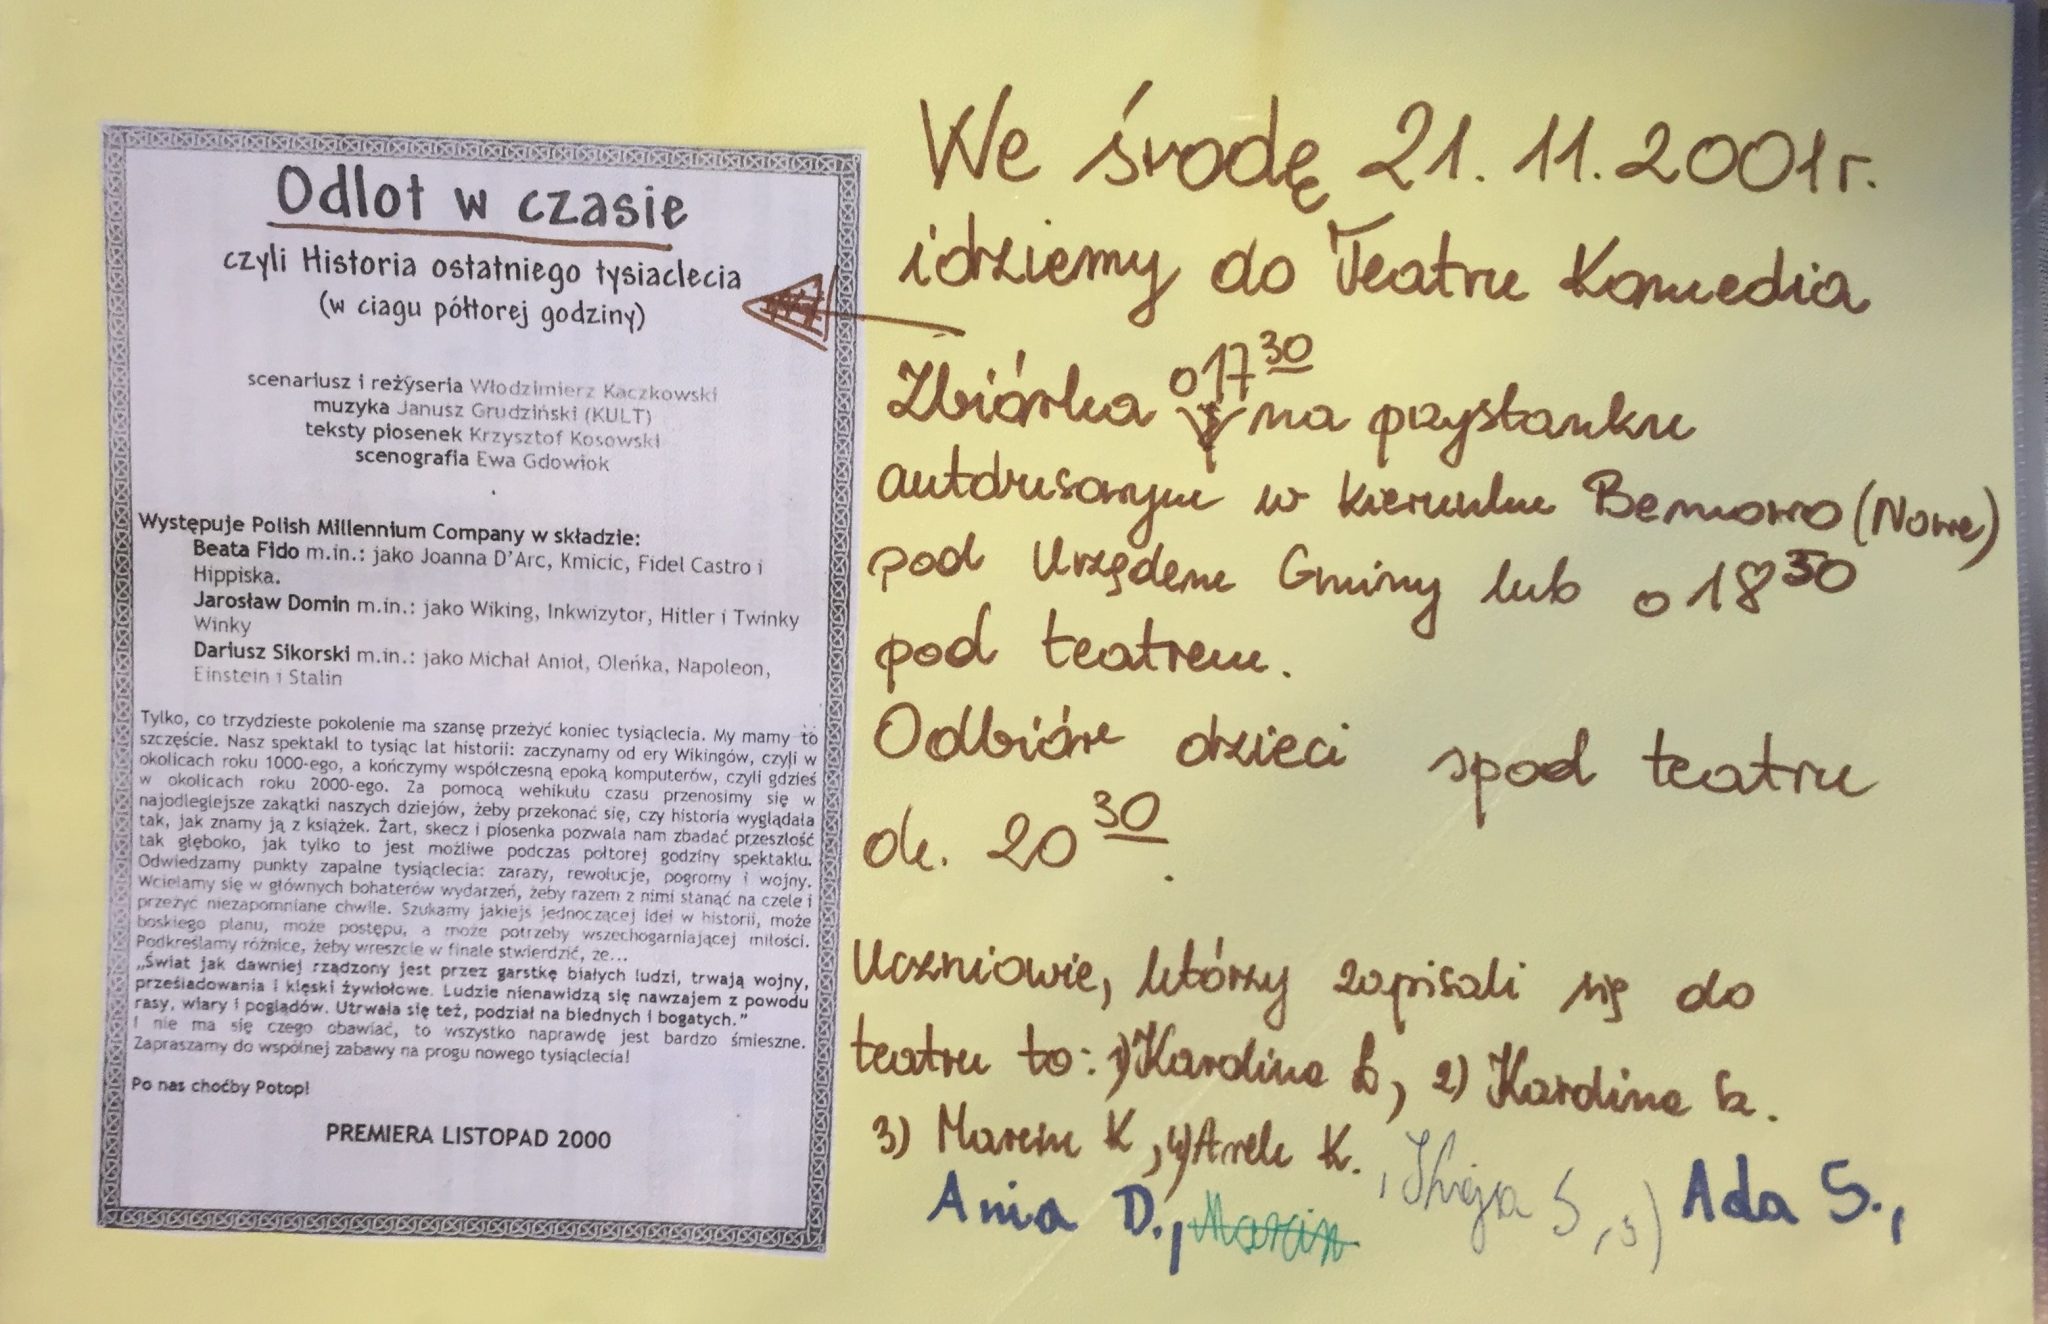 Odlot w czasie
czyli Historia ostatniego tysiaclecia
(w ciagu półtorej godziny)
scenariusz i reżyseria Włodzimierz Kaczkowski
muzyka Janusz Grudziński (KULT)
teksty piosenek Krzysztof Kosowski
scenografia Ewa Gdowiok
Występuje Polish Millennium Company w składzie:
Beata Fido m.in.: jako Joanna D'Arc, Kmicic, Fidel Castro i
Hippiska.
Jarosław Domin m.in.: jako Wiking, Inkwizytor, Hitler i Twinky
Winky
Dariusz Sikorski m.in.: jako Michał Anioł, Oleńka, Napoleon,
Einstein i Stalin
Tylko, co trzydzieste pokolenie ma szansę przeżyć koniec tysiąclecia. My mamy to
szczęście. Nasz spektakl to tysiąc lat historii: zaczynamy od ery Wikingów, czyli w
okolicach roku 1000-ego, a kończymy współczesną epoką komputerów, czyli gdzieś
w okolicach roku 2000-ego. Za pomocą wehikułu czasu przenosimy się w
najodleglejsze zakątki naszych dziejów, żeby przekonać się, czy historia wyglądała
tak, jak znamy ją z książek. Żart, skecz i piosenka pozwala nam zbadać przeszłość
tak głęboko, jak tylko to jest możliwe podczas półtorej godziny spektaklu.
Odwiedzamy punkty zapalne tysiąclecia: zarazy, rewolucje, pogromy i wojny.
Wcielamy się w głównych bohaterów wydarzeń, żeby razem z nimi stanąć na czele i
przeżyć niezapomniane chwile. Szukamy jakiejś jednoczącej idei w historii, może
boskiego planu, może postępu, a może potrzeby wszechogarniającej miłości.
Podkreślamy różnice, żeby wreszcie w finale stwierdzić, że...
„Świat jak dawniej rządzony jest przez garstkę białych ludzi, trwają wojny,
prześladowania i klęski żywiołowe. Ludzie nienawidzą się nawzajem z powodu
rasy, wiary i poglądów. Utrwala się też, podział na biednych i bogatych."
I nie ma się czego obawiać, to wszystko naprawdę jest bardzo śmieszne.
Zapraszamy do wspólnej zabawy na progu nowego tysiąclecia!
Po nas choćby Potop!
PREMIERA LISTOPAD 2000
We środę 21.11.2001r.
idziemy do Teatru Komedia
Zbiórka o 17 30 na przystanku
autobusowym w kierunku Bemowo (Nowe)
pod Urzędem Gminy lub o 18 30
pod teatrem.
Odbiór dzieci spod teatru
ok. 20 30.
Uczniowie, którzy zapisali się do
teatru to: 1) Karolina Ł, 2) Karolina Sz.
3) Marcin K, 4) Arek K.,
S, 5) Ada S.,
Ania D., Marcin